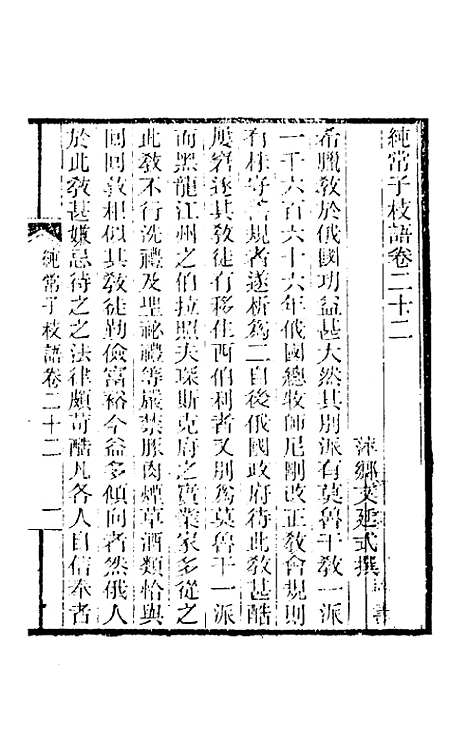 純常子枝語卷二十二
萍鄉文廷式撰
希臘敎於俄國功益甚大然其別派有莫魯干敎一派
一千六百六十六年俄國總牧師尼剛改正敎會規則
有林守舊規者遂析爲二自後俄國政府待此敎甚酷
屢窘逐其敎徒有移住西伯利者又別爲莫魯干一派
而黑龍江州之伯拉照夫琛斯克府之實業家多從之
此敎不行洗禮及聖祕禮等嚴禁豚肉煙草酒類恰與
回回敎相似其敎徒勤儉富裕今益多傾向者然俄人
於此敎甚嫌忌待之之法律頗苛酷凡各人自信奉者
純常子枝語卷二十二
一